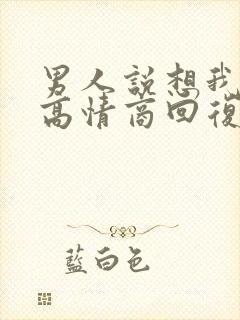 男人説想我
高情商回復
藍白色